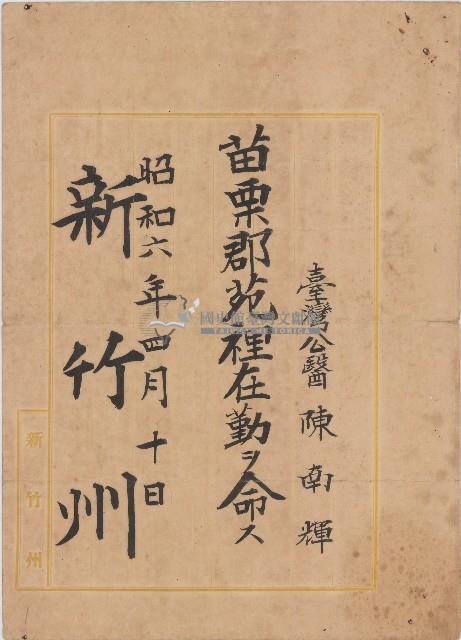 臺灣公醫 陳南輝
苗栗郡苑裡在勤ヲ命ス
昭和六年四月十日
新竹州
新竹州
國史館臺灣文獻館
TAIWAN HISTORICA